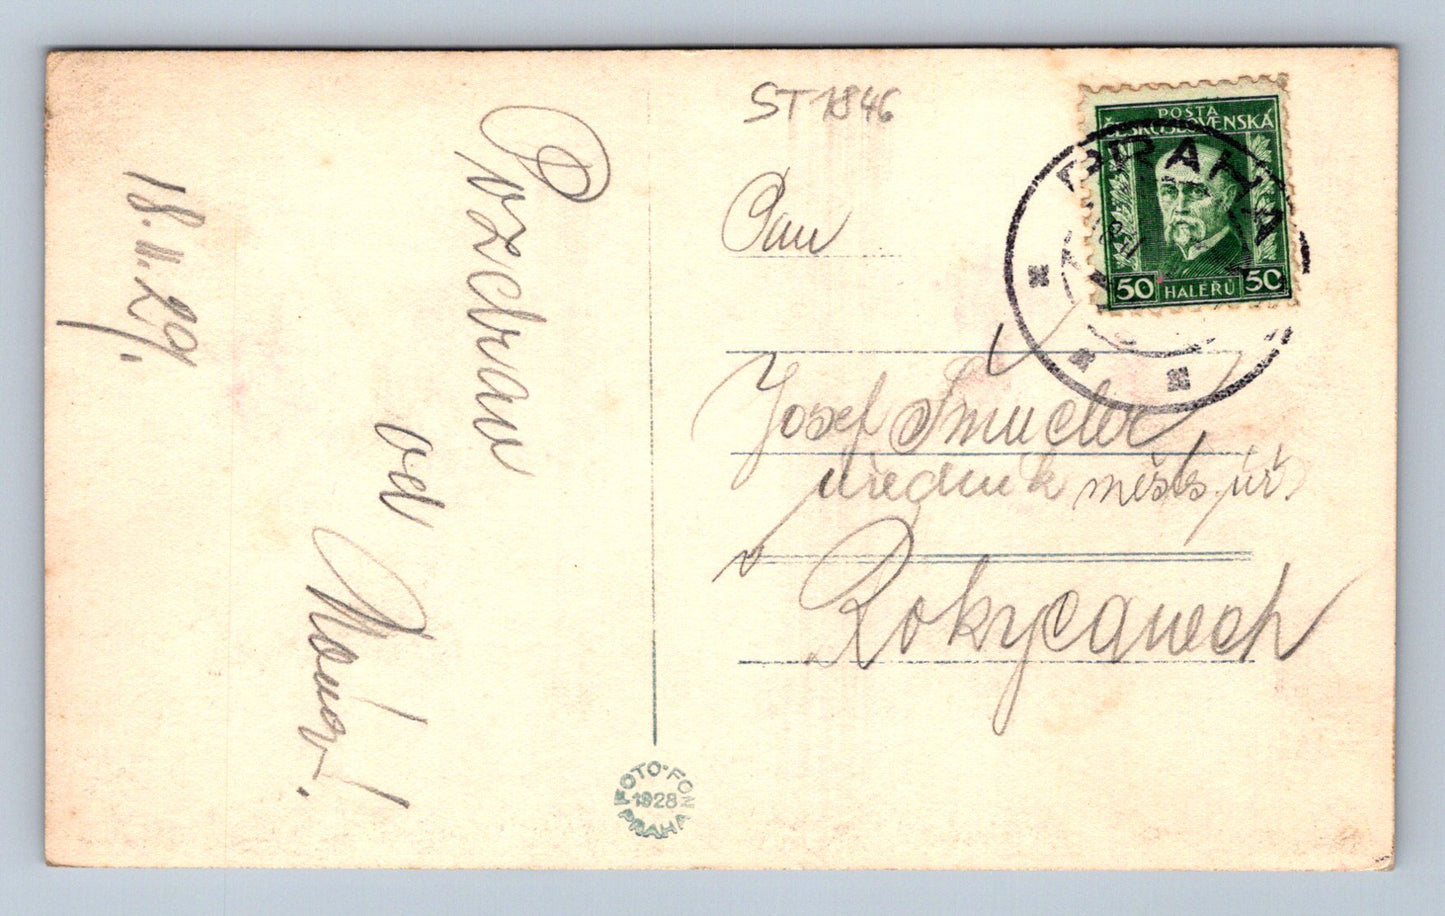 18. II. 29.
Pozdrav
od
ST 1846
Pan
Josef Šmucler
úředník měst. úř.
v Rokycanech
POŠTA
ČESKOSLOVENSKÁ
50 HALÉŘŮ 50
PRAHA
FOTO-FON
1928
PRAHA